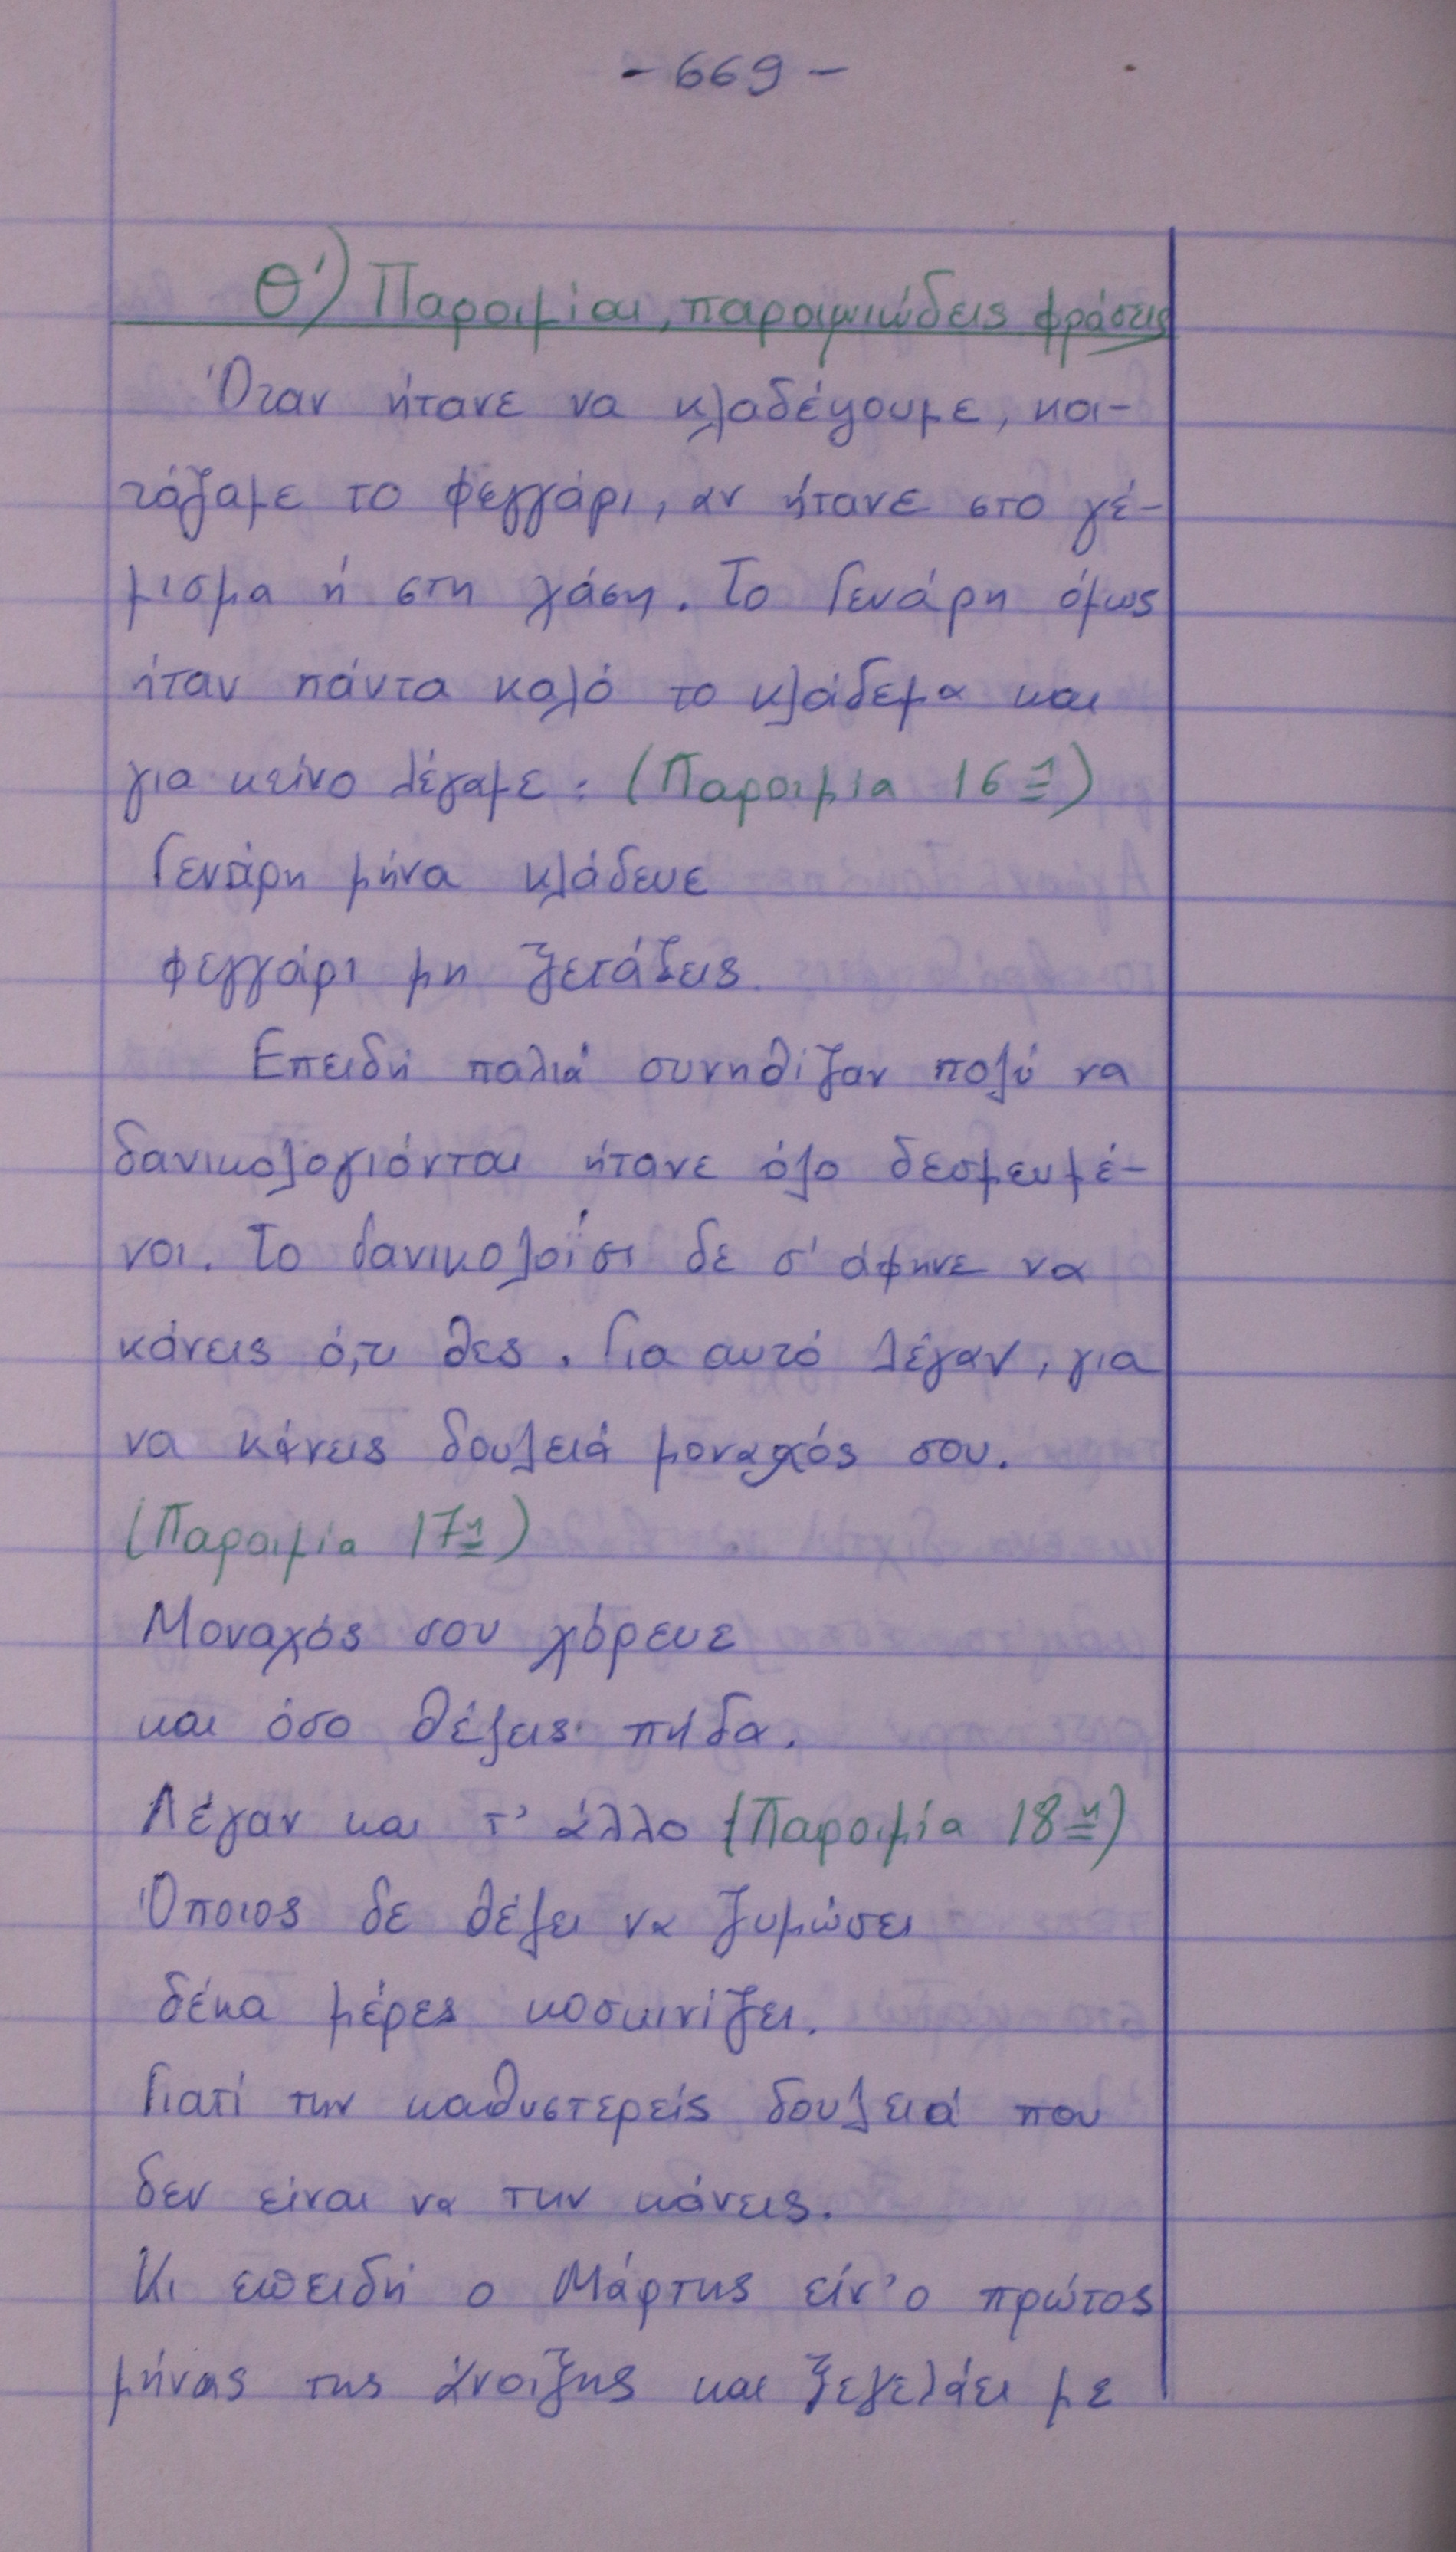 - 669 -
Θ') Παροιμίαι, παροιμιώδεις φράσεις
Όταν ήτανε να κλαδέψουμε, κοι-
τάζαμε το φεγγάρι, αν ήτανε στο γέ-
μισμα ή στη χάση. Το Γενάρη όμως
ήταν πάντα καλό το κλάδεμα και
για κείνο λέγαμε: (Παροιμία 16η)
Γενάρη μήνα κλάδευε
φεγγάρι μη ξετάζεις
Επειδή παλιά συνηθίζαν πολύ να
δανικολογιόνται ήτανε όλο δεσμευμέ-
νοι. Το δανικολοΐσι δε σ' άφηνε να
κάνεις ό,τι θες. Για αυτό λέγαν, για
να κάνεις δουλειά μοναχός σου.
(Παροιμία 17η)
Μοναχός σου χόρευε
και όσο θέλεις πήδα.
Λέγαν και τ' άλλο (Παροιμία 18η)
Όποιος δε θέλει να ζυμώσει
δέκα μέρες κοσκινίζει.
Γιατί την καθυστερείς δουλειά που
δεν είναι να την κάνεις.
Κι επειδή ο Μάρτης είν' ο πρώτος
μήνας της άνοιξης και ξεγελάει με